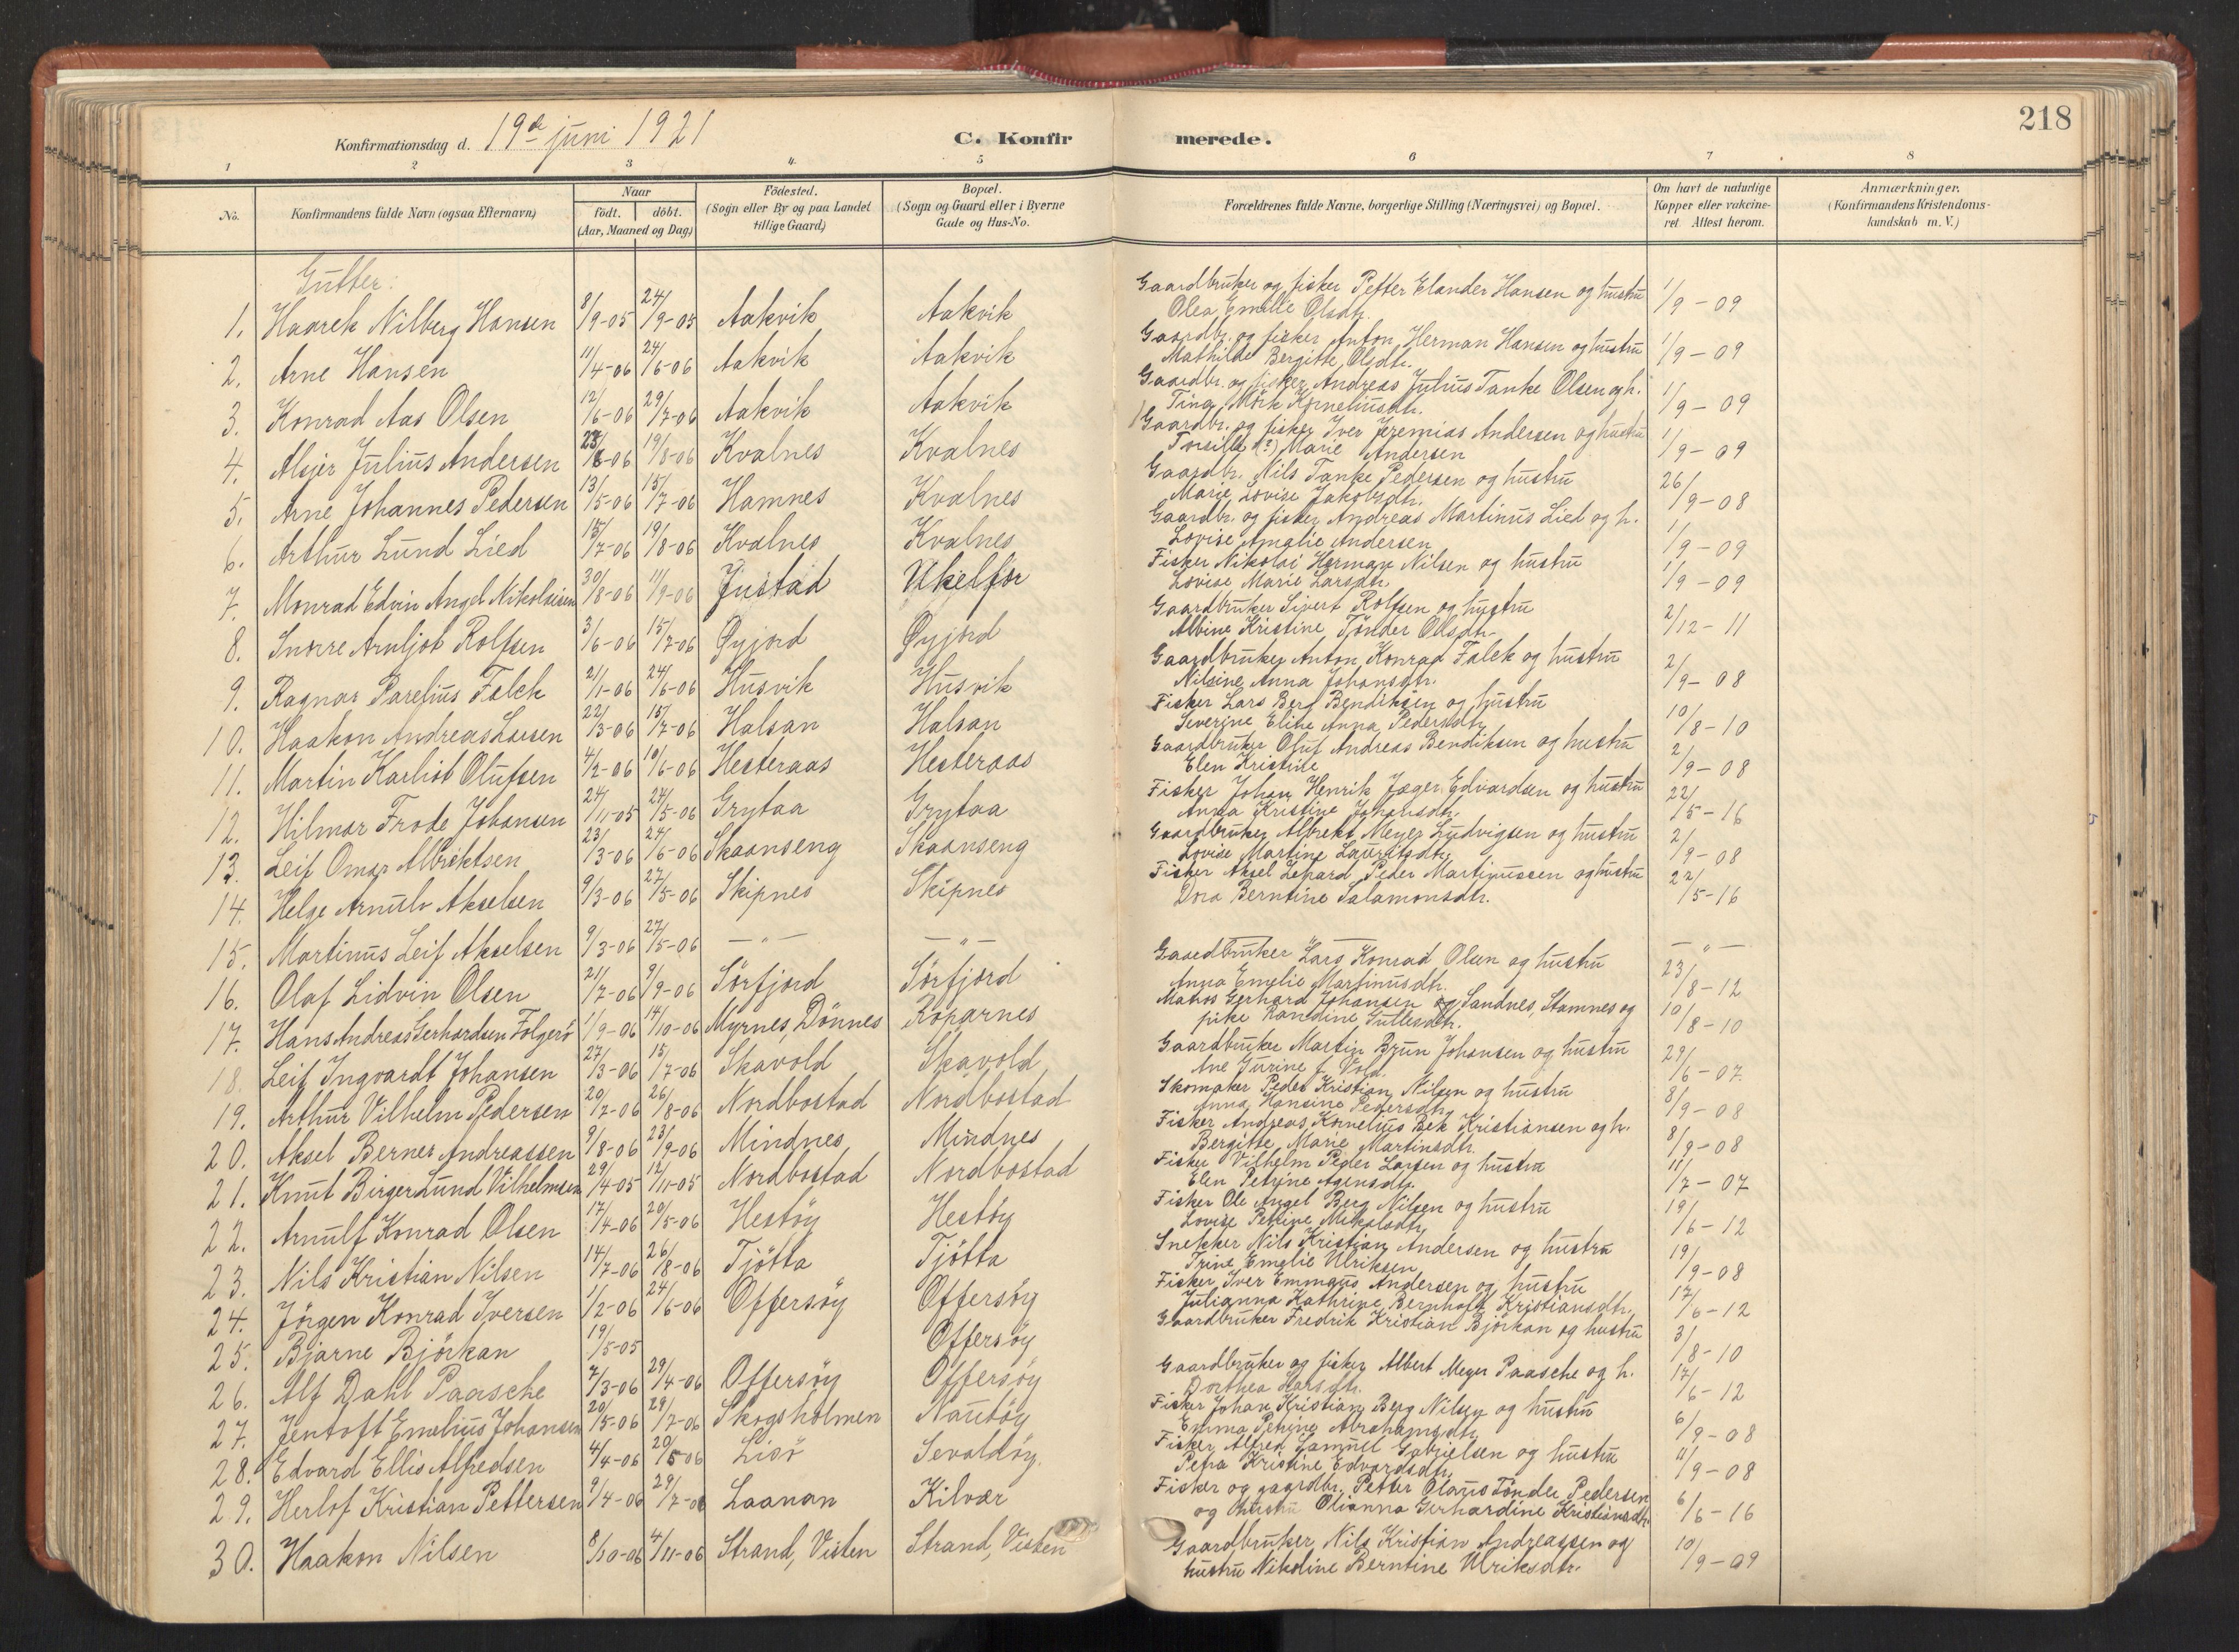 218
Konfirmationsdag d. 19de juni 1921
C. Konfirmerede.
1 2 3 4. 5 6 7 8
No. Konfirmandens fulde Navn (ogsaa Efternavn) Naar födt. döbt. (Aar, Maaned og Dag) Födested. (Sogn eller By og paa Landet tillige Gaard) Bopæl. (Sogn og Gaard eller i Byerne Gade og Hus-No. Forældrenes fulde Navne, borgerlige Stilling (Næringsvei) og Bopæl. Om havt de naturlige Kopper eller vakcineret Attest herom. Anmærkninger. (Konfirmandens Kristendomskundskab m. V.)
Gutter:
1. Haarek Nilberg Hansen 8/9-05 24/9-05 Aakvik Aakvik Gaardbruker og fisker Petter Elander Hansen og hustru Olea Emelie Olsdtr. 1/9-09
2. Arne Hansen 11/4-06 24/6-06 Aakvik Aakvik Gaardbr. og fisker Anton Herman Hansen og hustru Mathilde Bergitte Olsdtr. 1/9-09
3. Konrad Aas Olsen 12/6-06 29/7-06 Aakvik Aakvik Gaardbr. og fisker Andreas Julius Tanke Olsen og h. Tina Mörk Korneliusdtr. 1/9-09
4. Alsjer Julius Andersen 23/6-06 19/8-06 Kvalnes Kvalnes Gaardbr. og fisker Iver Jeremias Andersen og hustru Torsille (?) Marie Andersen 1/9-09
5. Arne Johannes Pedersen 13/5-06 15/7-06 Hamnes Kvalnes Gaardbr. Nils Tanke Pedersen og hustru Marie Lovise Jakobsdtr. 26/9-08
6. Arthur Lund Lied 15/7-06 19/8-06 Kvalnes Kvalnes Gaardbr. og fisker Andreas Martinus Lied og h. Lovise Amalie Andersen 1/9-09
7. Monrad Edvin Angel Nikolaisen 30/8-06 11/9-06 Justad Fisker Nikolai Herman Nilsen og hustru Lovise Marie Larsdtr. 1/9-09
8. Snorre Arnljot Rolfsen 3/6-06 15/7-06 Øyjord Øyjord Gaardbruker Sivert Rolfsen og hustru Albine Kristine Tönder Olsdtr. 2/12-11
9. Ragnar Parelius Falck 21/1-06 24/6-06 Husvik Husvik Gaardbruker Anton Konrad Falck og hustru Nilsine Anna Johansdtr. 2/9-08
10. Haakon Andreas Larsen 22/3-06 15/7-06 Halsan Halsan Fisker Lars Berg Bendiksen og hustru Severine Eline Anna Pedersdtr. 10/8-10
11. Martin Karliot Olufsen 4/2-06 10/6-06 Hesteraas Hesteraas Gaardbruker Oluf Andreas Bendiksen og hustru Elen Kristine 2/9-08
12. Hilmar Frode Johansen 24/11-05 24/5-06 Grytaa Grytaa Fisker Johan Henrik Jæger Edvardsen og hustru Anna Kristine Johansdtr. 22/5-16
13. Leif Omar Albriktsen 23/3-06 24/6-06 Skaanseng Skaanseng Gaardbruker Albrekt Meyer Ludvigsen og hustru Lovise Martine Lauritsdtr. 2/9-08
14. Helge Arnulv Akselsen 9/3-06 27/5-06 Skipnes Skipnes Fisker Aksel Lepard Peder Martinussen og hustru Dora Berntine Salamonsdtr. 22/5-16
15. Martinus Leif Akselsen 9/3-06 27/5-06 — " — — " — — " — — " —
16. Olaf Lidvin Olsen 21/7-06 9/9-06 Sörfjord Sörfjord Gaardbruker Lars Konrad Olsen og hustru Anna Emelie Martinusdtr. 23/8-12
17. Hans Andreas Gerhardsen Folgerö 1/9-06 14/10-06 Myrnes, Dönnes Röparnes Matros Gerhard Johansen og Sandnes, Stamnes og pike Randine Tullesdtr. 10/8-10
18. Leif Ingvardt Johansen 27/3-06 15/7-06 Skavold Skavold Gaardbruker Martin Brun Johansen og hustru Ane Turine f. Vold. 29/6-07
19. Arthur Vilhelm Pedersen 20/7-06 26/8-06 Nordbostad Nordbostad Skomaker Peder Kristian Nilsen og hustru Anna Hansine Pedersdtr. 8/9-08
20. Aksel Berner Andreassen 9/8-06 23/9-06 Mindnes Mindnes Fisker Andreas Kornelius Bek Kristiansen og h. Bergitte Marie Martinsdtr. 8/9-08
21. Knut Birger Lund Vilhelmsen 29/4-05 12/11-05 Nordbostad Nordbostad Fisker Vilhelm Peder Larsen og hustru Elen Petrine Agensdtr. 11/7-07
22. Arnulf Konrad Olsen 17/4-06 20/5-06 Hestöy Hestöy Fisker Ole Angel Berg Nilsen og hustru Lovise Petrine Mekalsdtr. 19/6-12
23. Nils Kristian Nilsen 14/7-06 26/8-06 Tjötta Tjötta Snekker Nils Kristian Andersen og hustru Trine Emelie Ulriksen 19/9-08
24. Jörgen Konrad Iversen 1/2-06 24/6-06 Offersöy Offersöy Fisker Iver Emmaus Andersen og hustru Julianna Kathrine Bernhoft Kristiansdtr. 17/6-12
25. Bjarne Björkan 19/5-05 Offersöy Gaardbruker Fredrik Kristian Björkan og hustru 3/8-10
26. Alf Dahl Paasche 7/3-06 29/4-06 Offersöy Offersöy Gaardbruker og fisker Albert Meyer Paasche og h. Dorthea Larsdtr. 17/6-12
27. Jentoft Emelius Johansen 20/5-06 29/7-06 Skogsholmen Nautöy Fisker Johan Kristian Berg Nilsen og hustru Emma Petrine Abrahamsdtr. 6/9-08
28. Edvard Ellis Alfredsen 4/4-06 20/5-06 Lisö Sevaldöy. Fisker Alfred Samuel Gabrielsen og hustru Petra Kristine Edvardsdtr. 11/9-08
29. Herlof Kristian Pettersen 9/4-06 29/7-06 Laanan Kilvær Fisker og gaardbr. Petter Olaus Tönder Pedersen og hustru Olianna Gerhardine Kristiansdtr. 6/6-16
30. Haakon Nilsen 8/10-06 4/11-06 Strand, Visten Strand, Visten Gaardbruker Nils Kristian Andreassen og hustru Nikoline Berntine Ulriksdtr. 10/9-09